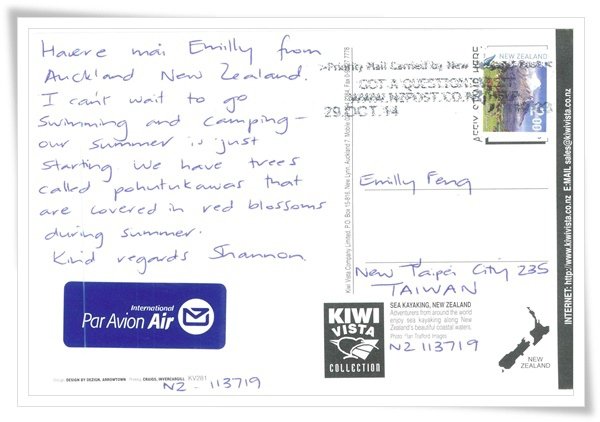 Haere mai Emilly from
Auckland New Zealand.
I can't wait to go
swimming and camping -
our summer is just
starting. We have trees
called pohutukawas that
are covered in red blossoms
during summer.
Kind regards Shannon.
International
Par Avion Air
DESIGN BY DEZIGN, ARROWTOWN
CRAIGS, INVERCARGILL KV2B1
NZ - 113719
Priority Mail Carried by New
GOT A QUESTION
WWW.NZPOST.CO.NZ
29.OCT.14
NEW ZEALAND
2.00
AFFIX STAMP HERE
Emilly Feng
New Taipei City 235
TAIWAN
Kiwi Vista Company Limited. P.O. Box 15-916, New Lynn, Auckland 7
KIWI
VISTA
COLLECTION
SEA KAYAKING, NEW ZEALAND
Adventurers from around the world
enjoy sea kayaking along New
Zealand's beautiful coastal waters.
Photo: Ian Trafford Images
NZ 113719
NEW
ZEALAND
INTERNET: http://www.kiwivista.co.nz E.MAIL sales@kiwivista.co.nz